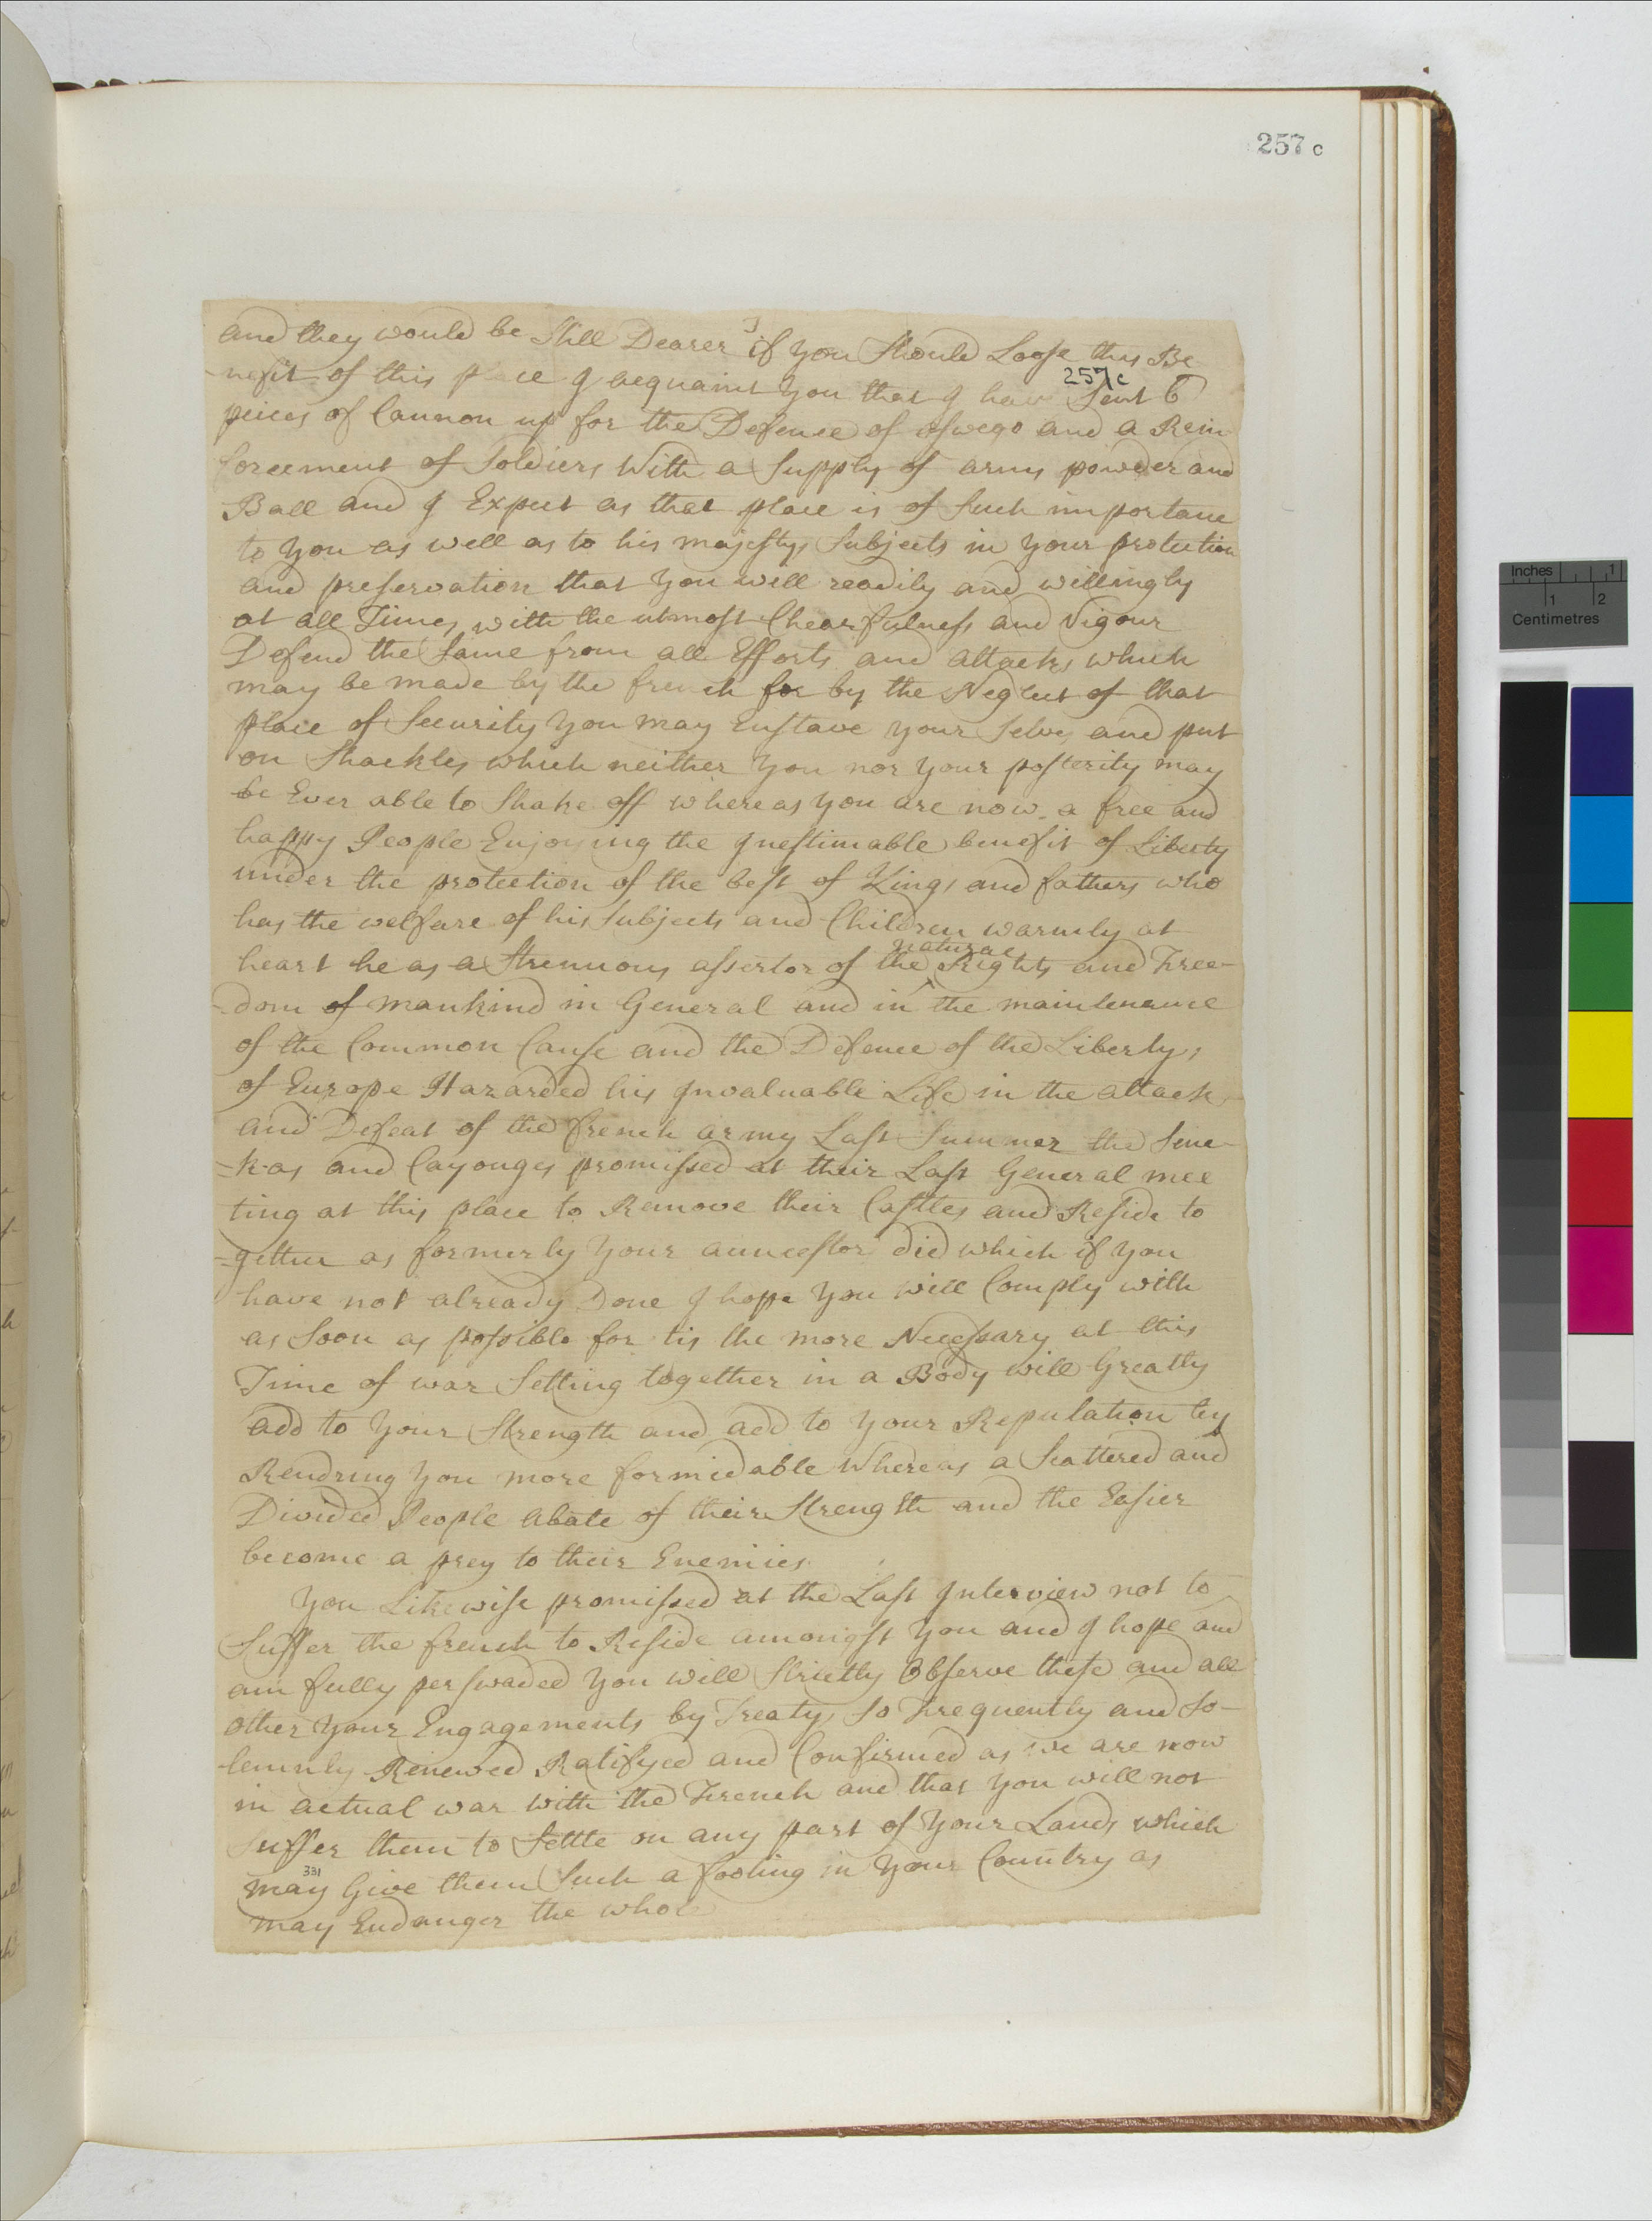 257 c
and they would be Still Dearer if you Should Loose this Be
nefit of this place I acquaint you that I have Sent 6
257c
peices of Cannon up for the Defence of oswego and a Rein
forcement of Soldiers With a Supply of arms powder and
Ball and I Expect as that place is of Such importance
to you as well as to his majestys Subjects in your protection
and preservation that you will readily and willingly
at all Times with the utmost Chearfulness and Vigour
Defend the Same from all Efforts and attacks which
may be made by the french for by the Neglect of that
place of Security you may Enslave your Selves and put
on Shackles which neither you nor your posterity may
be Ever able to Shake off whereas you are now a free and
happy People Enjoying the Inestimable benefit of Liberty
under the protection of the best of Kings and fathers who
has the welfare of his Subjects and Children warmly at
heart he as a Strenuous assertor of the natural Rights and Free-
-dom of mankind in General and in the maintenance
of the Common Cause and the Defence of the Libertys
of Europe Hazarded his Invaluable Life in the attack
and Defeat of the french army Last Summer the Sene-
-kas and Cayouges promissed at their Last General mee
ting at this place to Remove their Castles and Reside to
=gether as formerly your auncestor did which if you
have not already Done I hope you will Comply with
as Soon as possible for tis the more Necessary at this
Time of war Setting together in a Body will Greatly
add to your Strength and add to your Reputation by
Rendring you more formidable Whereas a Scattered and
Divided People abate of their Strength and the Easier
become a prey to their Enemies
You Likewise promissed at the Last Interview not to
Suffer the french to Reside amongst you and I hope and
am fully perswaded you will Strictly Observe these and all
other your Engagements by Treatys So Frequently and So-
-lemnly Renewed Ratifyed and Confirmed as we are now
in actual war with the French and that you will not
Suffer them to Settle on any part of your Lands which
331
may Give them Such a footing in your Country as
may Endanger the whole
Inches 1
1 2
Centimetres